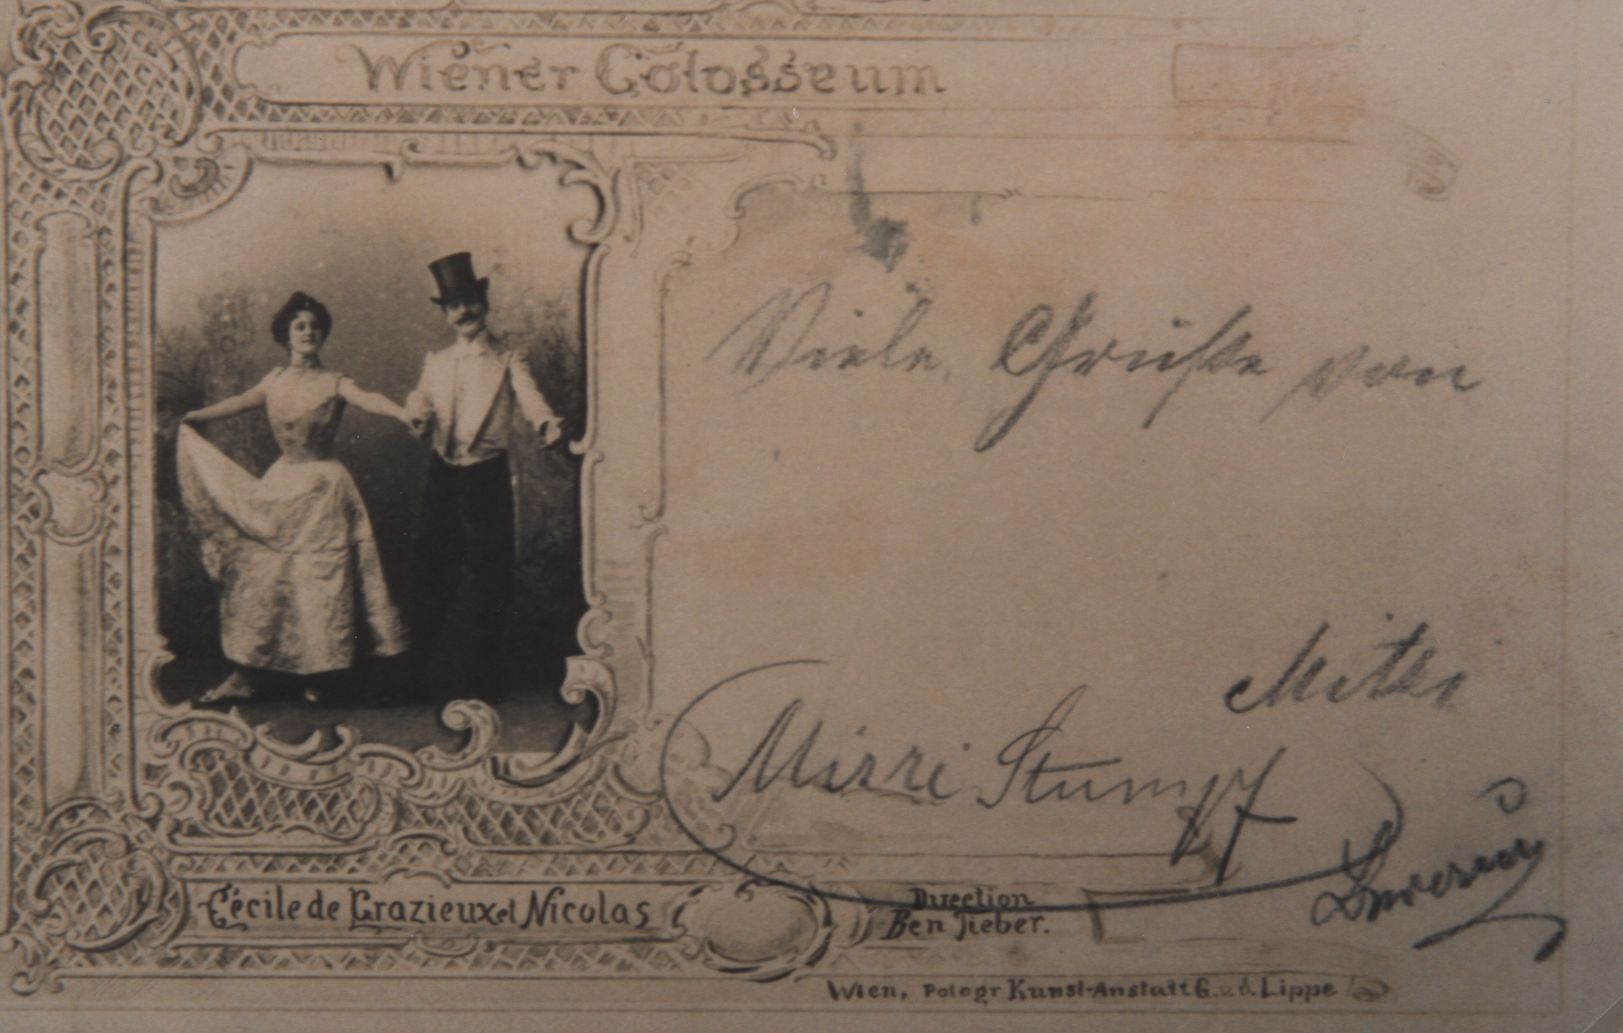 Wiener Colosseum
Viele Grüße von
Mitzi
Mizzi Stumpf
Cécile de Grazieux et Nicolas
Direction
Ben Tieber.
Wien, Potogr Kunst-Anstalt G. v. d. Lippe